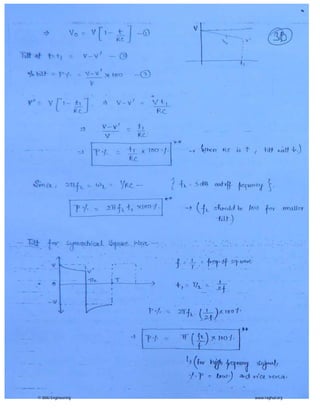 ⇒ V₀ = V [1 - t/RC] —①
V
V'
t₁
38
Tilt at t=t₁ = V-V' —②
% tilt = P% = (V-V')/V × 100 —③
V' = V [1 - t₁/RC] ⇒ V-V' = V t₁/RC
⇒ (V-V')/V = t₁/RC
⇒ P% = t₁/RC × 100% ** → (when RC is ↑, tilt will ↓)
Since, 2πf₁ = ω₁ = 1/RC — { f₁ - 3dB cutoff frequency }.
P% = 2πf₁ t₁ ×100% ** → (f₁ should be less for smaller tilt.)
Tilt for symmetrical square wave —
V V'
0 T/2 T
-V
f = 1/T = freq. of square
t₁ = T/2 = 1/2f
P% = 2πf₁ (1/2f) × 100%
⇒ P% = π (f₁/f) × 100% **
↳ (for high frequency signal,
% P = less) and vice versa.
© BBM Engineering www.raghul.org